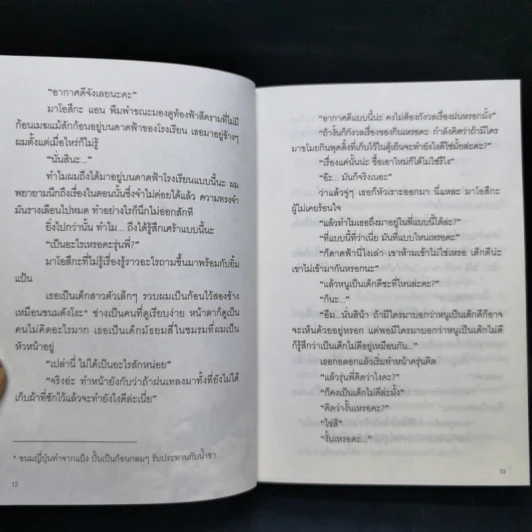 “อากาศดีจังเลยนะคะ”
มาโอสึกะ แอน พึมพำขณะมองดูท้องฟ้าสีครามที่ไม่มี
ก้อนเมฆแม้สักก้อนอยู่บนดาดฟ้าของโรงเรียน เธอมาอยู่ข้างๆ
ผมตั้งแต่เมื่อไหร่ก็ไม่รู้
“นั่นสินะ...”
ทำไมผมถึงได้มาอยู่บนดาดฟ้าโรงเรียนแบบนี้นะ ผม
พยายามนึกถึงเรื่องในตอนนั้นซึ่งจำไม่ค่อยได้แล้ว ความทรงจำ
มันรางเลือนไปหมด ทำอย่างไรก็นึกไม่ออกสักที
ยิ่งไปกว่านั้น ทำไม... ถึงได้รู้สึกเศร้าแบบนี้นะ
“เป็นอะไรเหรอคะรุ่นพี่?”
มาโอสึกะที่ไม่รู้เรื่องรู้ราวอะไรถามขึ้นมาพร้อมกับยิ้ม
แป้น
เธอเป็นเด็กสาวตัวเล็กๆ รวบผมเป็นก้อนไว้สองข้าง
เหมือนขนมดังโงะ* ช่างเป็นคนที่ดูเรียบง่าย หน้าตาก็ดูเป็น
คนไม่คิดอะไรมาก เธอเป็นเด็กมัธยมสี่ในชมรมที่ผมเป็น
หัวหน้าอยู่
“เปล่านี่ ไม่ได้เป็นอะไรสักหน่อย”
“จริงอ่ะ ทำหน้ายังกับว่าถ้าฝนเทลงมาทั้งที่ยังไม่ได้
เก็บผ้าที่ซักไว้แล้วจะทำยังไงดีล่ะเนี่ย”
* ขนมญี่ปุ่นทำจากแป้ง ปั้นเป็นก้อนกลมๆ รับประทานกับน้ำชา
12
“อากาศดีแบบนี้น่ะ คงไม่ต้องกังวลเรื่องฝนหรอกมั้ง”
“ถ้างั้นก็กังวลเรื่องของกินเหรอคะ กำลังคิดว่าถ้ามีใคร
มาขโมยกินพุดดิ้งที่เก็บไว้ในตู้เย็นจะทำยังไงดีใช่มั้ยล่ะคะ?”
“เรื่องแค่นั้นน่ะ ซื้อเอาใหม่ก็ได้ไม่ใช่รึไง”
“อ๊ะ... มันก็จริงเนอะ”
ว่าแล้วจู่ๆ เธอก็หัวเราะออกมา นี่แหละ มาโอสึกะ
ผู้ไม่เคยร้อนใจ
“แล้วทำไมเธอถึงมาอยู่ในที่แบบนี้ได้ล่ะ?”
“ที่แบบนี้ที่ว่าเนี่ย มันที่แบบไหนเหรอคะ”
“ก็ดาดฟ้านี่ไงเล่า เขาห้ามเข้าไม่ใช่เหรอ เด็กดีน่ะ
เขาไม่เข้ามากันหรอกนะ”
“แล้วหนูเป็นเด็กดีซะที่ไหนล่ะคะ?”
“ก็นะ...”
“อืม...นั่นสิน้า ถ้ามีใครมาบอกว่าหนูเป็นเด็กดีก็อาจ
จะเห็นด้วยอยู่หรอก แต่พอมีใครมาบอกว่าหนูเป็นเด็กไม่ดี
ก็รู้สึกว่าเป็นเด็กไม่ดีอยู่เหมือนกัน...”
เธอกอดอกแล้วเริ่มทำหน้าครุ่นคิด
“แล้วรุ่นพี่คิดว่าไงคะ?”
“ก็คงเป็นเด็กไม่ดีล่ะมั้ง”
“คิดว่างั้นเหรอคะ?”
“ใช่สิ”
“งั้นเหรอคะ...”
13